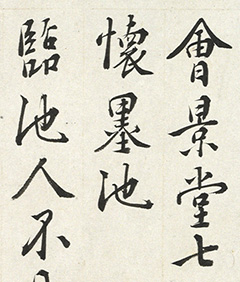 會景堂七
懷墨池
臨池人不